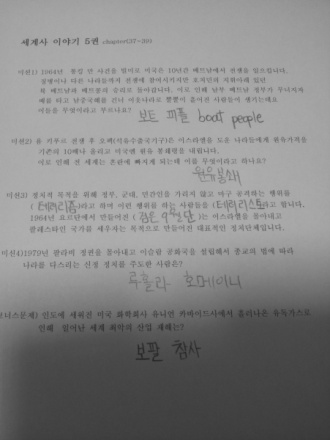 세계사 이야기 5권 chapter(37~39)
미션1) 1964년 통킹 만 사건을 빌미로 미국은 10년간 베트남에서 전쟁을 일으킵니다.
공병이나 다른 나라들까지 전쟁에 참여시키지만 호치민의 지휘아래 있던
북 베트남과 베트콩의 승리로 돌아갑니다. 이로 인해 남부 베트남 정부가 무너지자
배를 타고 남중국해를 건너 이웃나라로 뿔뿔이 흩어진 사람들이 생기는데요
이들을 무엇이라고 부르나요? 보트 피플 boat people
미션2) 욤 키푸르 전쟁 후 오펙(석유수출국가구)은 이스라엘을 도운 나라들에게 원유가격을
기존의 10배나 올리고 미국엔 원유 봉쇄령을 내립니다.
이로 인해 전 세계는 혼란에 빠지게 되는데 이를 무엇이라고 하나요?
원유봉쇄
미션3) 정치적 목적을 위해 정부, 군대, 민간인을 가리지 않고 마구 공격하는 행위를
(테러리즘)라고 하며 이런 행위를 하는 사람들을 (테러리스트)라고 합니다.
1964년 요르단에서 만들어진 (검은 9월단)는 이스라엘을 몰아내고
팔레스타인 국가를 세우자는 목적으로 만들어진 대표적인 정치단체입니다.
미션4)1979년 팔라비 정권을 몰아내고 이슬람 공화국을 설립해서 종교의 법에 따라
나라를 다스리는 신정 정치를 주도한 사람은?
루홀라 호메이니
보너스문제) 인도에 세워진 미국 화학회사 유니언 카바이드사에서 흘러나온 유독가스로
인해 일어난 세계 최악의 산업 재해는?
보팔 참사